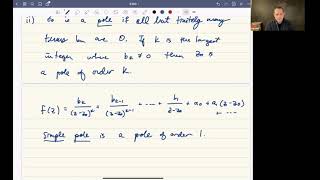 ii) Zo is a pole if all but finitely many
terms bn are 0. If k is the largest
integer where bk ≠ 0 then Zo is
a pole of order k.
f(z) = bk/(z-z0)^k + bk-1/(z-z0)^k-1 + ... + b1/z-z0 + a0 + a1(z-z0)
+ ...
Simple pole is a pole of order 1.